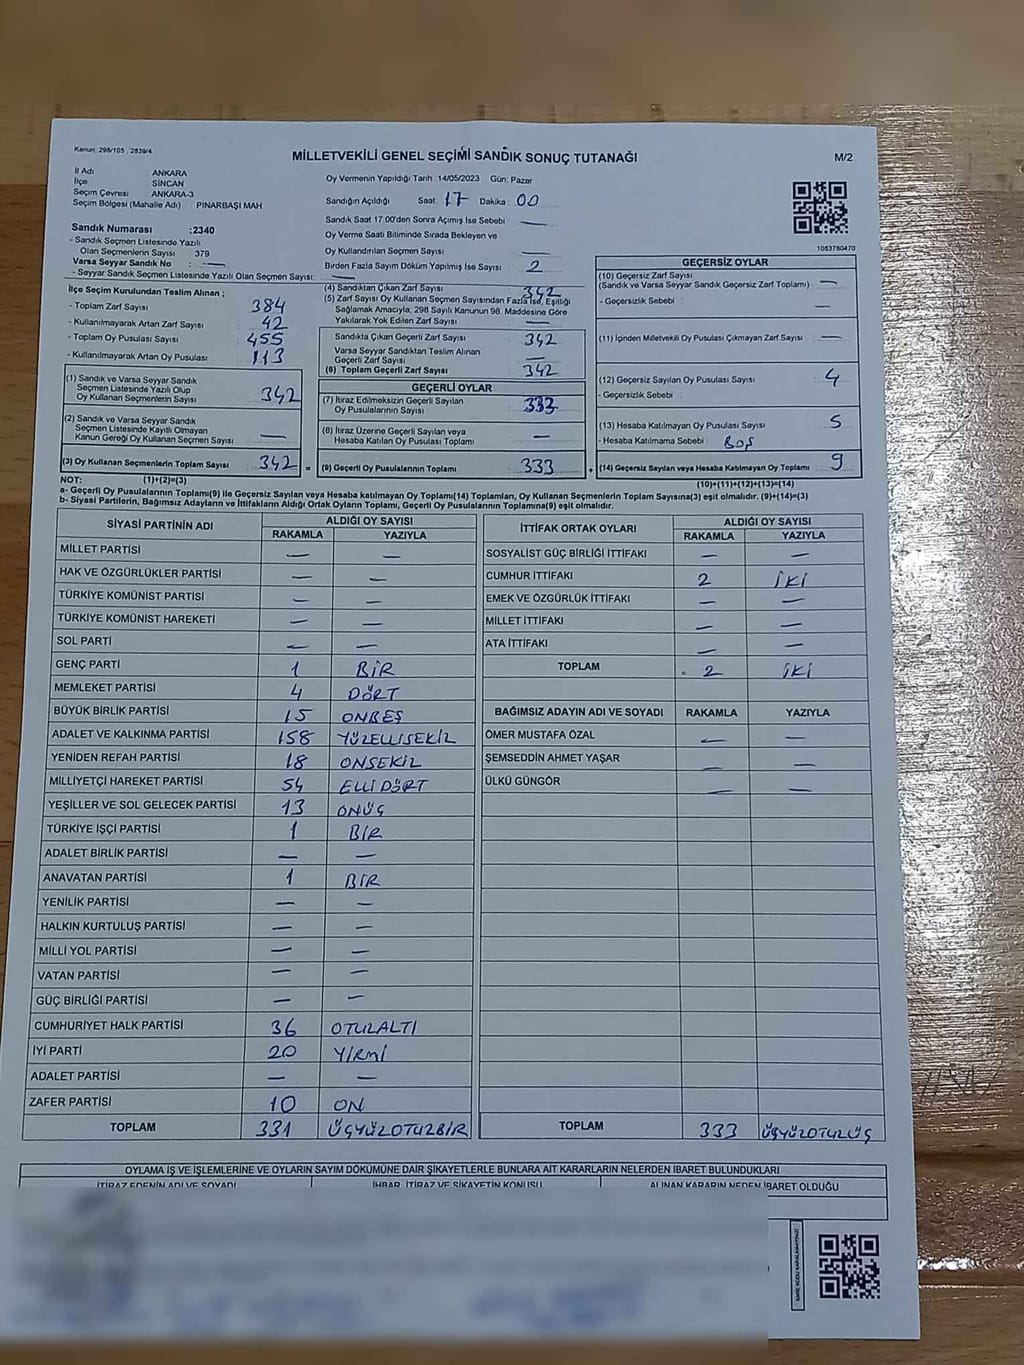 Kanun; 298/105 , 2839/4
MİLLETVEKİLİ GENEL SEÇİMİ SANDIK SONUÇ TUTANAĞI
M/2
İl Adı : ANKARA
İlçe : SİNCAN
Seçim Çevresi : ANKARA-3
Seçim Bölgesi (Mahalle Adı) : PINARBAŞI MAH
Sandık Numarası :2340
- Sandık Seçmen Listesinde Yazılı
Olan Seçmenlerin Sayısı : 379
Varsa Seyyar Sandık No : —
- Seyyar Sandık Seçmen Listesinde Yazılı Olan Seçmen Sayısı: —
Oy Vermenin Yapıldığı Tarih :14/05/2023 Gün: Pazar
Sandığın Açıldığı Saat: 17 Dakika: 00
Sandık Saat 17.00'den Sonra Açımış İse Sebebi : —
Oy Verme Saati Bitiminde Sırada Bekleyen ve
Oy Kullandırılan Seçmen Sayısı : —
Birden Fazla Sayım Döküm Yapılmış İse Sayısı : 2
1083780470
İlçe Seçim Kurulundan Teslim Alınan ;
- Toplam Zarf Sayısı : 384
- Kullanılmayarak Artan Zarf Sayısı : 42
- Toplam Oy Pusulası Sayısı : 455
- Kullanılmayarak Artan Oy Pusulası : 113
(1) Sandık ve Varsa Seyyar Sandık
Seçmen Listesinde Yazılı Olup
Oy Kullanan Seçmenlerin Sayısı : 342
(2) Sandık ve Varsa Seyyar Sandık
Seçmen Listesinde Kayıtlı Olmayan
Kanun Gereği Oy Kullanan Seçmen Sayısı : —
(3) Oy Kullanan Seçmenlerin Toplam Sayısı : 342 =
(4) Sandıktan Çıkan Zarf Sayısı : 342
(5) Zarf Sayısı Oy Kullanan Seçmen Sayısından Fazla İse, Eşitliği
Sağlamak Amacıyla; 298 Sayılı Kanunun 98. Maddesine Göre
Yakılarak Yok Edilen Zarf Sayısı : —
Sandıkta Çıkan Geçerli Zarf Sayısı : 342
Varsa Seyyar Sandıktan Teslim Alınan
Geçerli Zarf Sayısı : —
(6) Toplam Geçerli Zarf Sayısı : 342
GEÇERLİ OYLAR
(7) İtiraz Edilmeksizin Geçerli Sayılan
Oy Pusulalarının Sayısı : 333
(8) İtiraz Üzerine Geçerli Sayılan veya
Hesaba Katılan Oy Pusulası Toplamı : —
(9) Geçerli Oy Pusulalarının Toplamı : 333 +
GEÇERSİZ OYLAR
(10) Geçersiz Zarf Sayısı
(Sandık ve Varsa Seyyar Sandık Geçersiz Zarf Toplamı) : —
- Geçersizlik Sebebi : —
(11) İçinden Milletvekili Oy Pusulası Çıkmayan Zarf Sayısı : —
(12) Geçersiz Sayılan Oy Pusulası Sayısı : 4
- Geçersizlik Sebebi :
(13) Hesaba Katılmayan Oy Pusulası Sayısı : 5
- Hesaba Katılmama Sebebi : BOŞ
(14) Geçersiz Sayılan veya Hesaba Katılmayan Oy Toplamı : 9
NOT: (1)+(2)=(3) (10)+(11)+(12)+(13)=(14)
a- Geçerli Oy Pusulalarının Toplamı(9) ile Geçersiz Sayılan veya Hesaba katılmayan Oy Toplamı(14) Toplamları, Oy Kullanan Seçmenlerin Toplam Sayısına(3) eşit olmalıdır. (9)+(14)=(3)
b- Siyasi Partilerin, Bağımsız Adayların ve İttifakların Aldığı Ortak Oyların Toplamı, Geçerli Oy Pusulalarının Toplamına(9) eşit olmalıdır.
SİYASİ PARTİNİN ADI ALDIĞI OY SAYISI
RAKAMLA YAZIYLA
MİLLET PARTİSİ — —
HAK VE ÖZGÜRLÜKLER PARTİSİ — —
TÜRKİYE KOMÜNİST PARTİSİ — —
TÜRKİYE KOMÜNİST HAREKETİ — —
SOL PARTİ — —
GENÇ PARTİ 1 BİR
MEMLEKET PARTİSİ 4 DÖRT
BÜYÜK BİRLİK PARTİSİ 15 ONBEŞ
ADALET VE KALKINMA PARTİSİ 158 YÜZELLİSEKİZ
YENİDEN REFAH PARTİSİ 18 ONSEKİZ
MİLLİYETÇİ HAREKET PARTİSİ 54 ELLİ DÖRT
YEŞİLLER VE SOL GELECEK PARTİSİ 13 ONÜÇ
TÜRKİYE İŞÇİ PARTİSİ 1 BİR
ADALET BİRLİK PARTİSİ — —
ANAVATAN PARTİSİ 1 BİR
YENİLİK PARTİSİ — —
HALKIN KURTULUŞ PARTİSİ — —
MİLLİ YOL PARTİSİ — —
VATAN PARTİSİ — —
GÜÇ BİRLİĞİ PARTİSİ — —
CUMHURİYET HALK PARTİSİ 36 OTUZALTI
İYİ PARTİ 20 YİRMİ
ADALET PARTİSİ — —
ZAFER PARTİSİ 10 ON
TOPLAM 331 ÜÇYÜZOTUZBİR
İTTİFAK ORTAK OYLARI ALDIĞI OY SAYISI
RAKAMLA YAZIYLA
SOSYALİST GÜÇ BİRLİĞİ İTTİFAKI — —
CUMHUR İTTİFAKI 2 İKİ
EMEK VE ÖZGÜRLÜK İTTİFAKI — —
MİLLET İTTİFAKI — —
ATA İTTİFAKI — —
TOPLAM 2 İKİ
BAĞIMSIZ ADAYIN ADI VE SOYADI RAKAMLA YAZIYLA
ÖMER MUSTAFA ÖZAL — —
ŞEMSEDDİN AHMET YAŞAR — —
ÜLKÜ GÜNGÖR — —
TOPLAM 333 ÜÇYÜZOTUZÜÇ
OYLAMA İŞ VE İŞLEMLERİNE VE OYLARIN SAYIM DÖKÜMÜNE DAİR ŞİKAYETLERLE BUNLARA AİT KARARLARIN NELERDEN İBARET BULUNDUKLARI
İTİRAZ EDENİN ADI VE SOYADI İHBAR, İTİRAZ VE ŞİKAYETİN KONUSU ALINAN KARARIN NEDEN İBARET OLDUĞU
KARE KODU KARALAMAYINIZ!